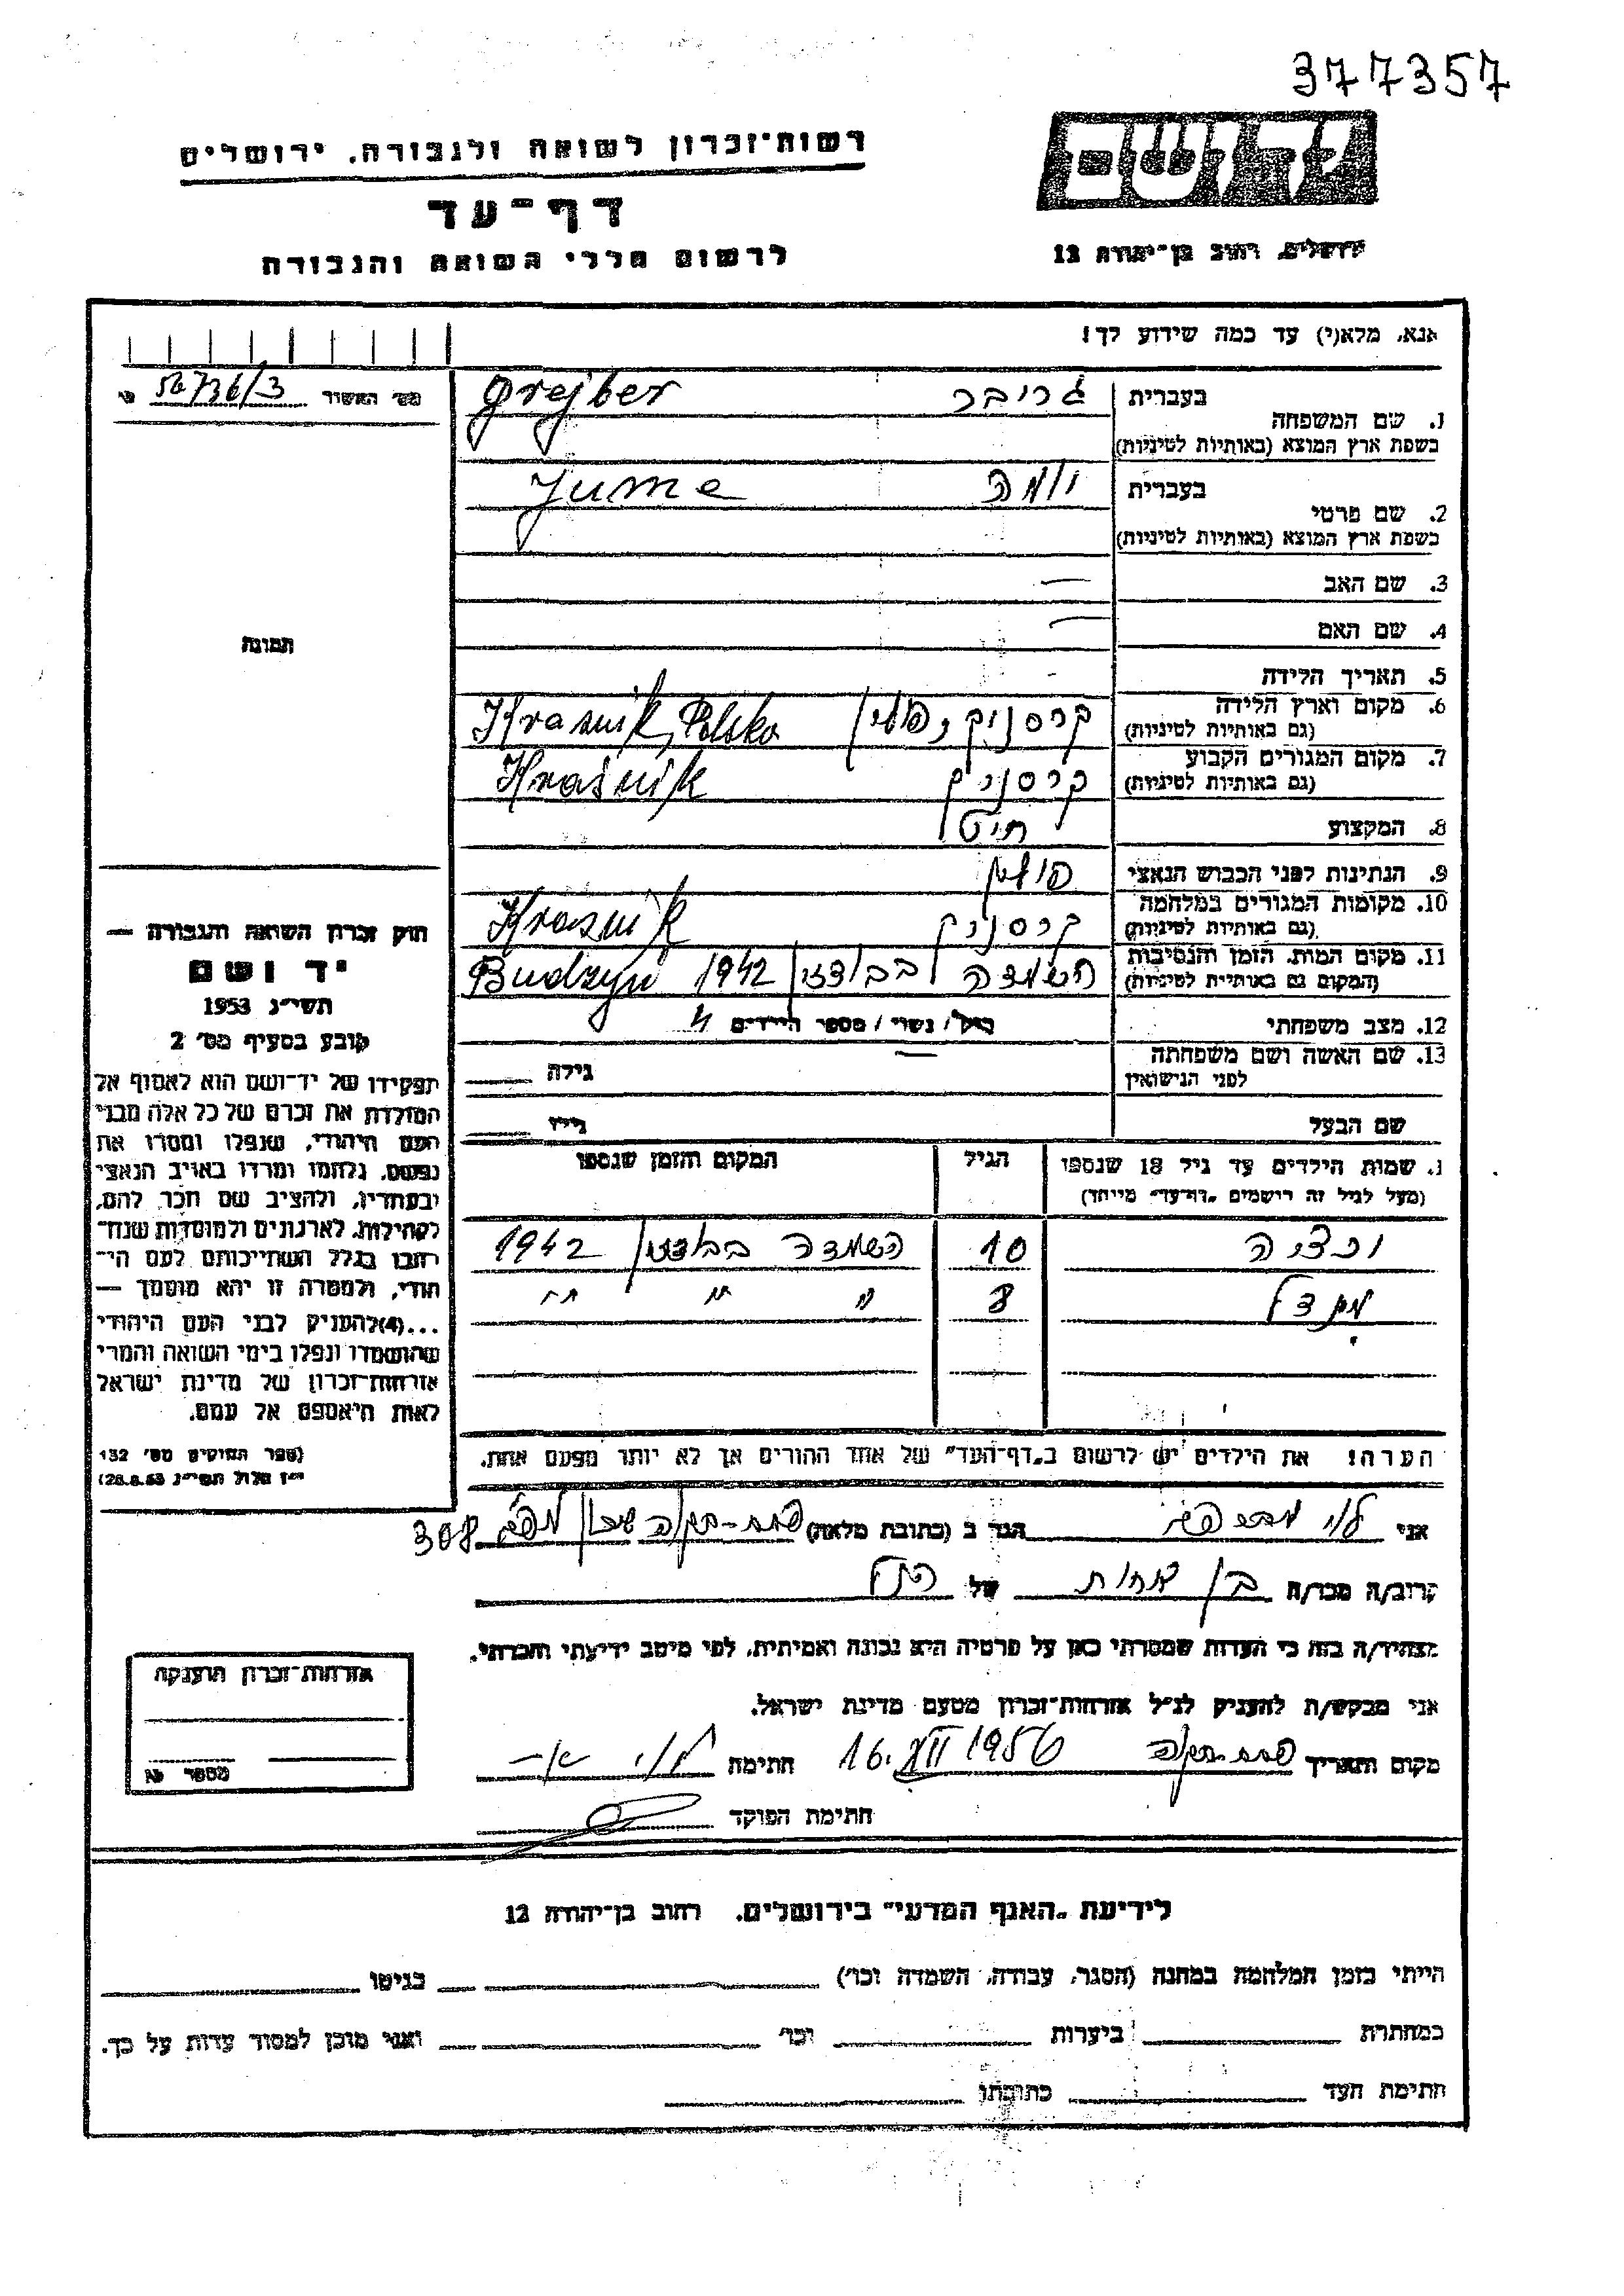 377357
יד ושם
ירושלים, רחוב בן־יהודה 12
רשות־זכרון לשואה ולגבורה, ירושלים
דף־עד
לרשום חללי השואה והגבורה
אנא, מלא(י) עד כמה שידוע לך!
מס׳ האשור
1. שם המשפחה
בעברית גריבר Grejber
בשפת ארץ המוצא (באותיות לטיניות)
2. שם פרטי
בעברית יומה Jume
בשפת ארץ המוצא (באותיות לטיניות)
3. שם האב —
4. שם האם —
5. תאריך הלידה
6. מקום וארץ הלידה קרסניק, פולין Kraśnik, Polska
(גם באותיות לטיניות)
7. מקום המגורים הקבוע קרסניק Kraśnik
(גם באותיות לטיניות)
8. המקצוע חיט
9. הנתינות לפני הכבוש הנאצי פולין
10. מקומות המגורים במלחמה קרסניק Kraśnik
(גם באותיות לטיניות)
11. מקום המות, הזמן והנסיבות השמדה בבודזין 1942 Budzyń
(המקום גם באותיות לטיניות)
12. מצב משפחתי רווק / נשוי / מספר הילדים 4
13. שם האשה ושם משפחתה — גילה
לפני הנישואין
שם הבעל גילו
שמות הילדים עד גיל 18 שנספו הגיל המקום והזמן שנספו
(מעל לגיל זה רושמים „דף־עד״ מיוחד)
10 השמדה בבודזין 1942
מנדל 8 ״ ״ ״
הערה! את הילדים יש לרשום ב„דף־העד״ של אחד ההורים אך לא יותר מפעם אחת.
תמונה
חוק זכרון השואה והגבורה —
יד ושם
תשי״ג 1953
קובע בסעיף מס׳ 2
תפקידו של יד־ושם הוא לאסוף אל
המולדת את זכרם של כל אלה מבני
העם היהודי, שנפלו ומסרו את
נפשם, נלחמו ומרדו באויב הנאצי
ובעוזריו, ולהציב שם וזכר להם,
לקהילות, לארגונים ולמוסדות שנח־
רבו בגלל השתייכותם לעם הי־
הודי, ולמטרה זו יהא מוסמך —
...(4)להעניק לבני העם היהודי
שהושמדו ונפלו בימי השואה והמרי
אזרחות־זכרון של מדינת ישראל
לאות היאספם אל עמם.
(ספר החוקים מס׳ 132
י״ז אלול תשי״ג 28.8.53)
אני לוי הגר ב (כתובת מלאה) פתח-תקוה שיכון 308
קרוב/ה מכר/ה בן אחות של הנ״ל
מצהיר/ה בזה כי העדות שמסרתי כאן על פרטיה היא נכונה ואמיתית, לפי מיטב ידיעתי והכרתי.
אני מבקש/ת להעניק לנ״ל אזרחות־זכרון מטעם מדינת ישראל.
מקום ותאריך פתח-תקוה 16.VII 1956 חתימה
חתימת הפוקד
אזרחות־זכרון הוענקה
מספר
לידיעת „האגף המדעי״ בירושלים, רחוב בן־יהודה 12
הייתי בזמן המלחמה במחנה (הסגר, עבודה, השמדה וכו׳) בגיטו
במחתרת ביערות וכו׳ ואני מוכן למסור עדות על כך.
חתימת העד כתובתו